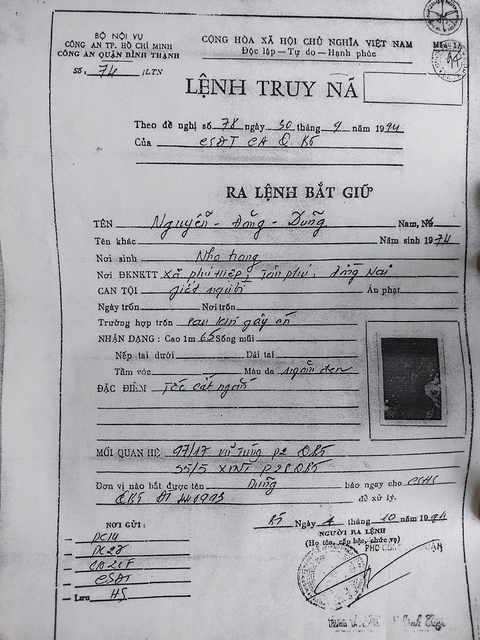 BỘ NỘI VỤ
CÔNG AN TP. HỒ CHÍ MINH
CÔNG AN QUẬN BÌNH THẠNH
Số, 74 /LTN
CỘNG HÒA XÃ HỘI CHỦ NGHĨA VIỆT NAM
Độc lập—Tự do—Hạnh phúc
LỆNH TRUY NÃ
Theo đề nghị số 78 ngày 30 tháng 9 năm 1994
Của CSĐT CA Q. BT
RA LỆNH BẮT GIỮ
TÊN Nguyễn - Đăng - Dũng Nam, Nữ
Tên khác Năm sinh 1974
Nơi sinh Nha trang
Nơi ĐKNKTT Xã phú Hiệp, Tân phú, Đồng Nai
CAN TỘI giết người Án phạt
Ngày trốn Nơi trốn
Trường hợp trốn sau khi gây án
NHẬN DẠNG : Cao 1m 65 Sống mũi
Nếp tai dưới Dái tai
Tầm vóc Màu da ngăm đen
ĐẶC ĐIỂM Tóc cắt ngắn
MỐI QUAN HỆ 97/17 Vũ Tùng P2 QBT
55/5 XVNT P26 QBT
Đơn vị nào bắt được tên Dũng báo ngay cho CSHS
QBT ĐT để xử lý.
BT Ngày 4 tháng 10 năm 1994
NƠI GỬI :
NGƯỜI RA LỆNH
(Họ tên, cấp bậc, chức vụ)
— PC14
— CSĐT
— Lưu HS